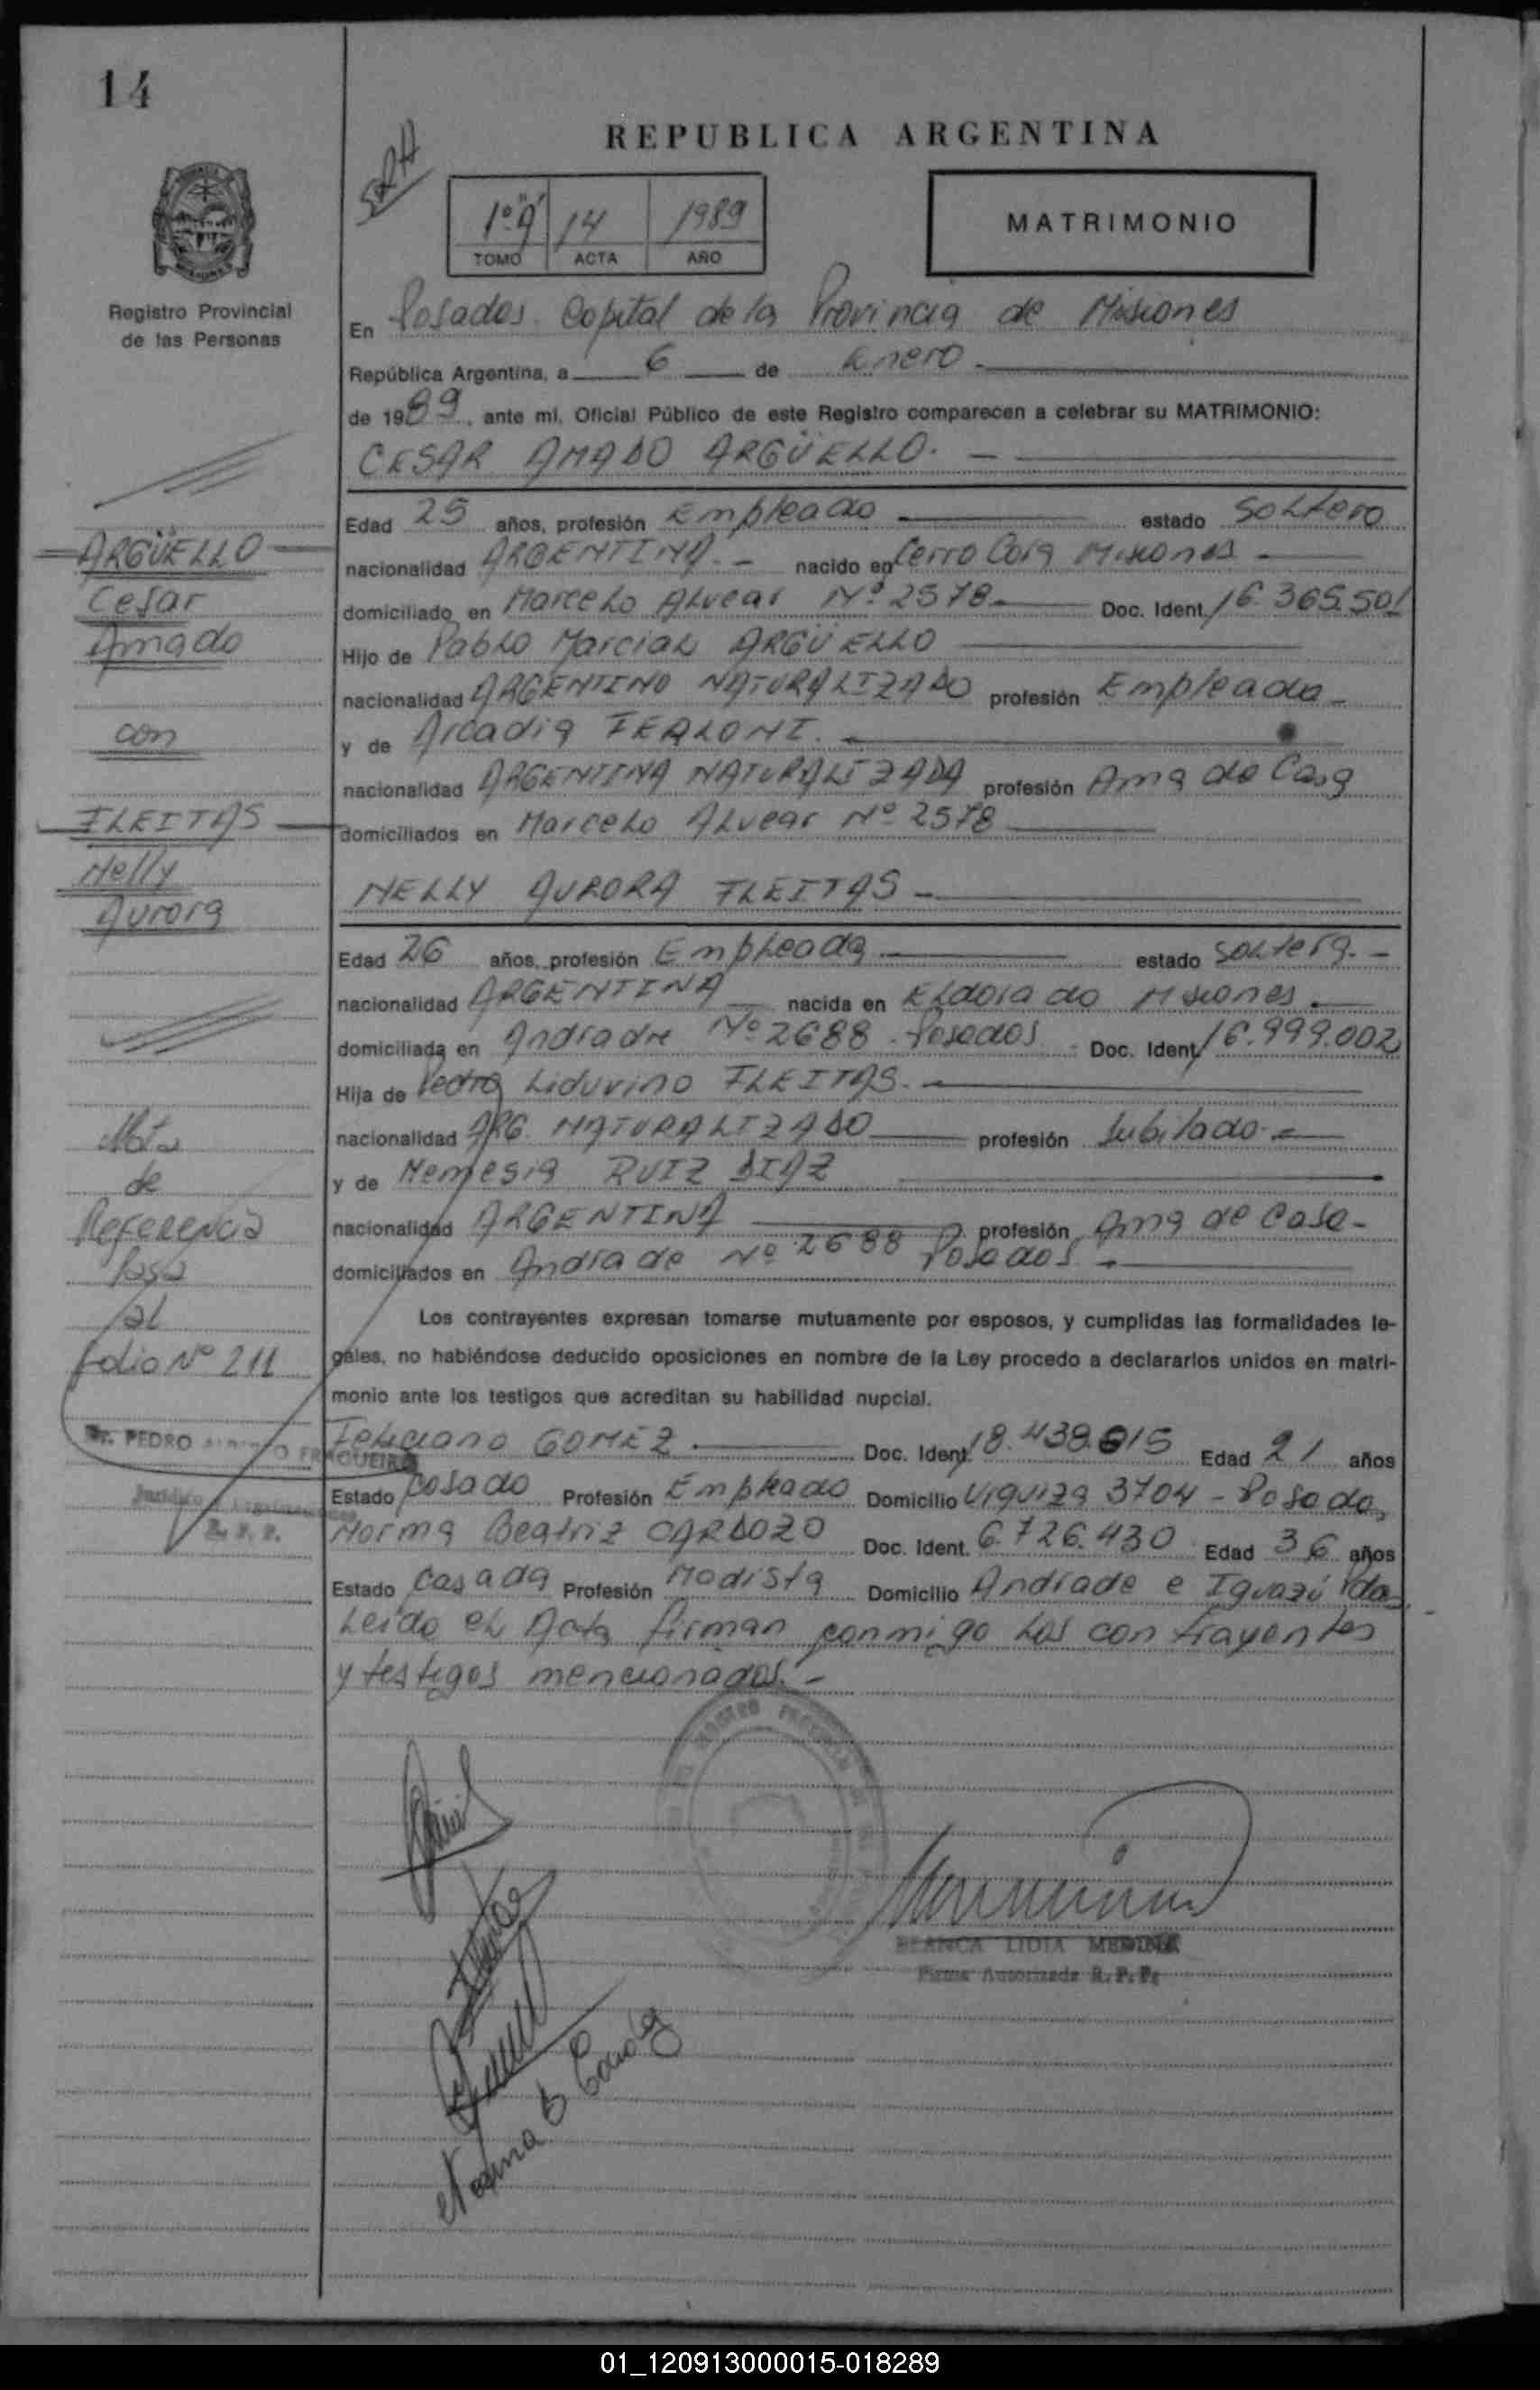 14
REPUBLICA ARGENTINA
1º "A" 14 1989
TOMO ACTA AÑO
MATRIMONIO
Registro Provincial
de las Personas
En Posadas Capital de la Provincia de Misiones
República Argentina, a 6 de Enero
de 1989, ante mí, Oficial Público de este Registro comparecen a celebrar su MATRIMONIO:
CESAR AMADO ARGÜELLO.
Edad 25 años, profesión Empleado estado Soltero
nacionalidad ARGENTINA. nacido en Cerro Cora Misiones
domiciliado en Marcelo Alvear Nº 2578 Doc. Ident. 16.365.501
Hijo de Pablo Marcial ARGÜELLO
nacionalidad ARGENTINO NATURALIZADO profesión Empleado
y de Arcadia
nacionalidad ARGENTINA NATURALIZADA profesión Ama de Casa
domiciliados en Marcelo Alvear Nº 2578
NELLY AURORA FLEITAS
Edad 26 años, profesión Empleada estado soltera.
nacionalidad ARGENTINA nacida en Eldorado Misiones
domiciliada en Andrade Nº 2688 - Posadas Doc. Ident. 16.999.002
Hija de Pedro Liduvino FLEITAS.
nacionalidad ARG. NATURALIZADO profesión Jubilado
y de Nemesia RUIZ DIAZ
nacionalidad ARGENTINA profesión Ama de Casa
domiciliados en Andrade Nº 2688 Posadas
Los contrayentes expresan tomarse mutuamente por esposos, y cumplidas las formalidades le-
gales, no habiéndose deducido oposiciones en nombre de la Ley procedo a declararlos unidos en matri-
monio ante los testigos que acreditan su habilidad nupcial.
Feliciano GOMEZ Doc. Ident. 18.438.615 Edad 21 años
Estado Casado Profesión Empleado Domicilio Urquiza 3704 - Posadas
Norma Beatriz CARDOZO Doc. Ident. 6.726.430 Edad 36 años
Estado Casada Profesión Modista Domicilio Andrade e Iguazú Pdas
Leido el Acta firman conmigo los contrayentes
y testigos mencionados.-
ARGÜELLO
Cesar
Amado
con
FLEITAS
Nelly
Aurora
Nota
de
Referencia
Pasa
al
folio Nº 211
Dr. PEDRO FRAGUEIRO
R. P. P.
Norma B Cardozo
BLANCA LIDIA MEDINA
Firma Autorizada R. P. P.
01_120913000015-018289